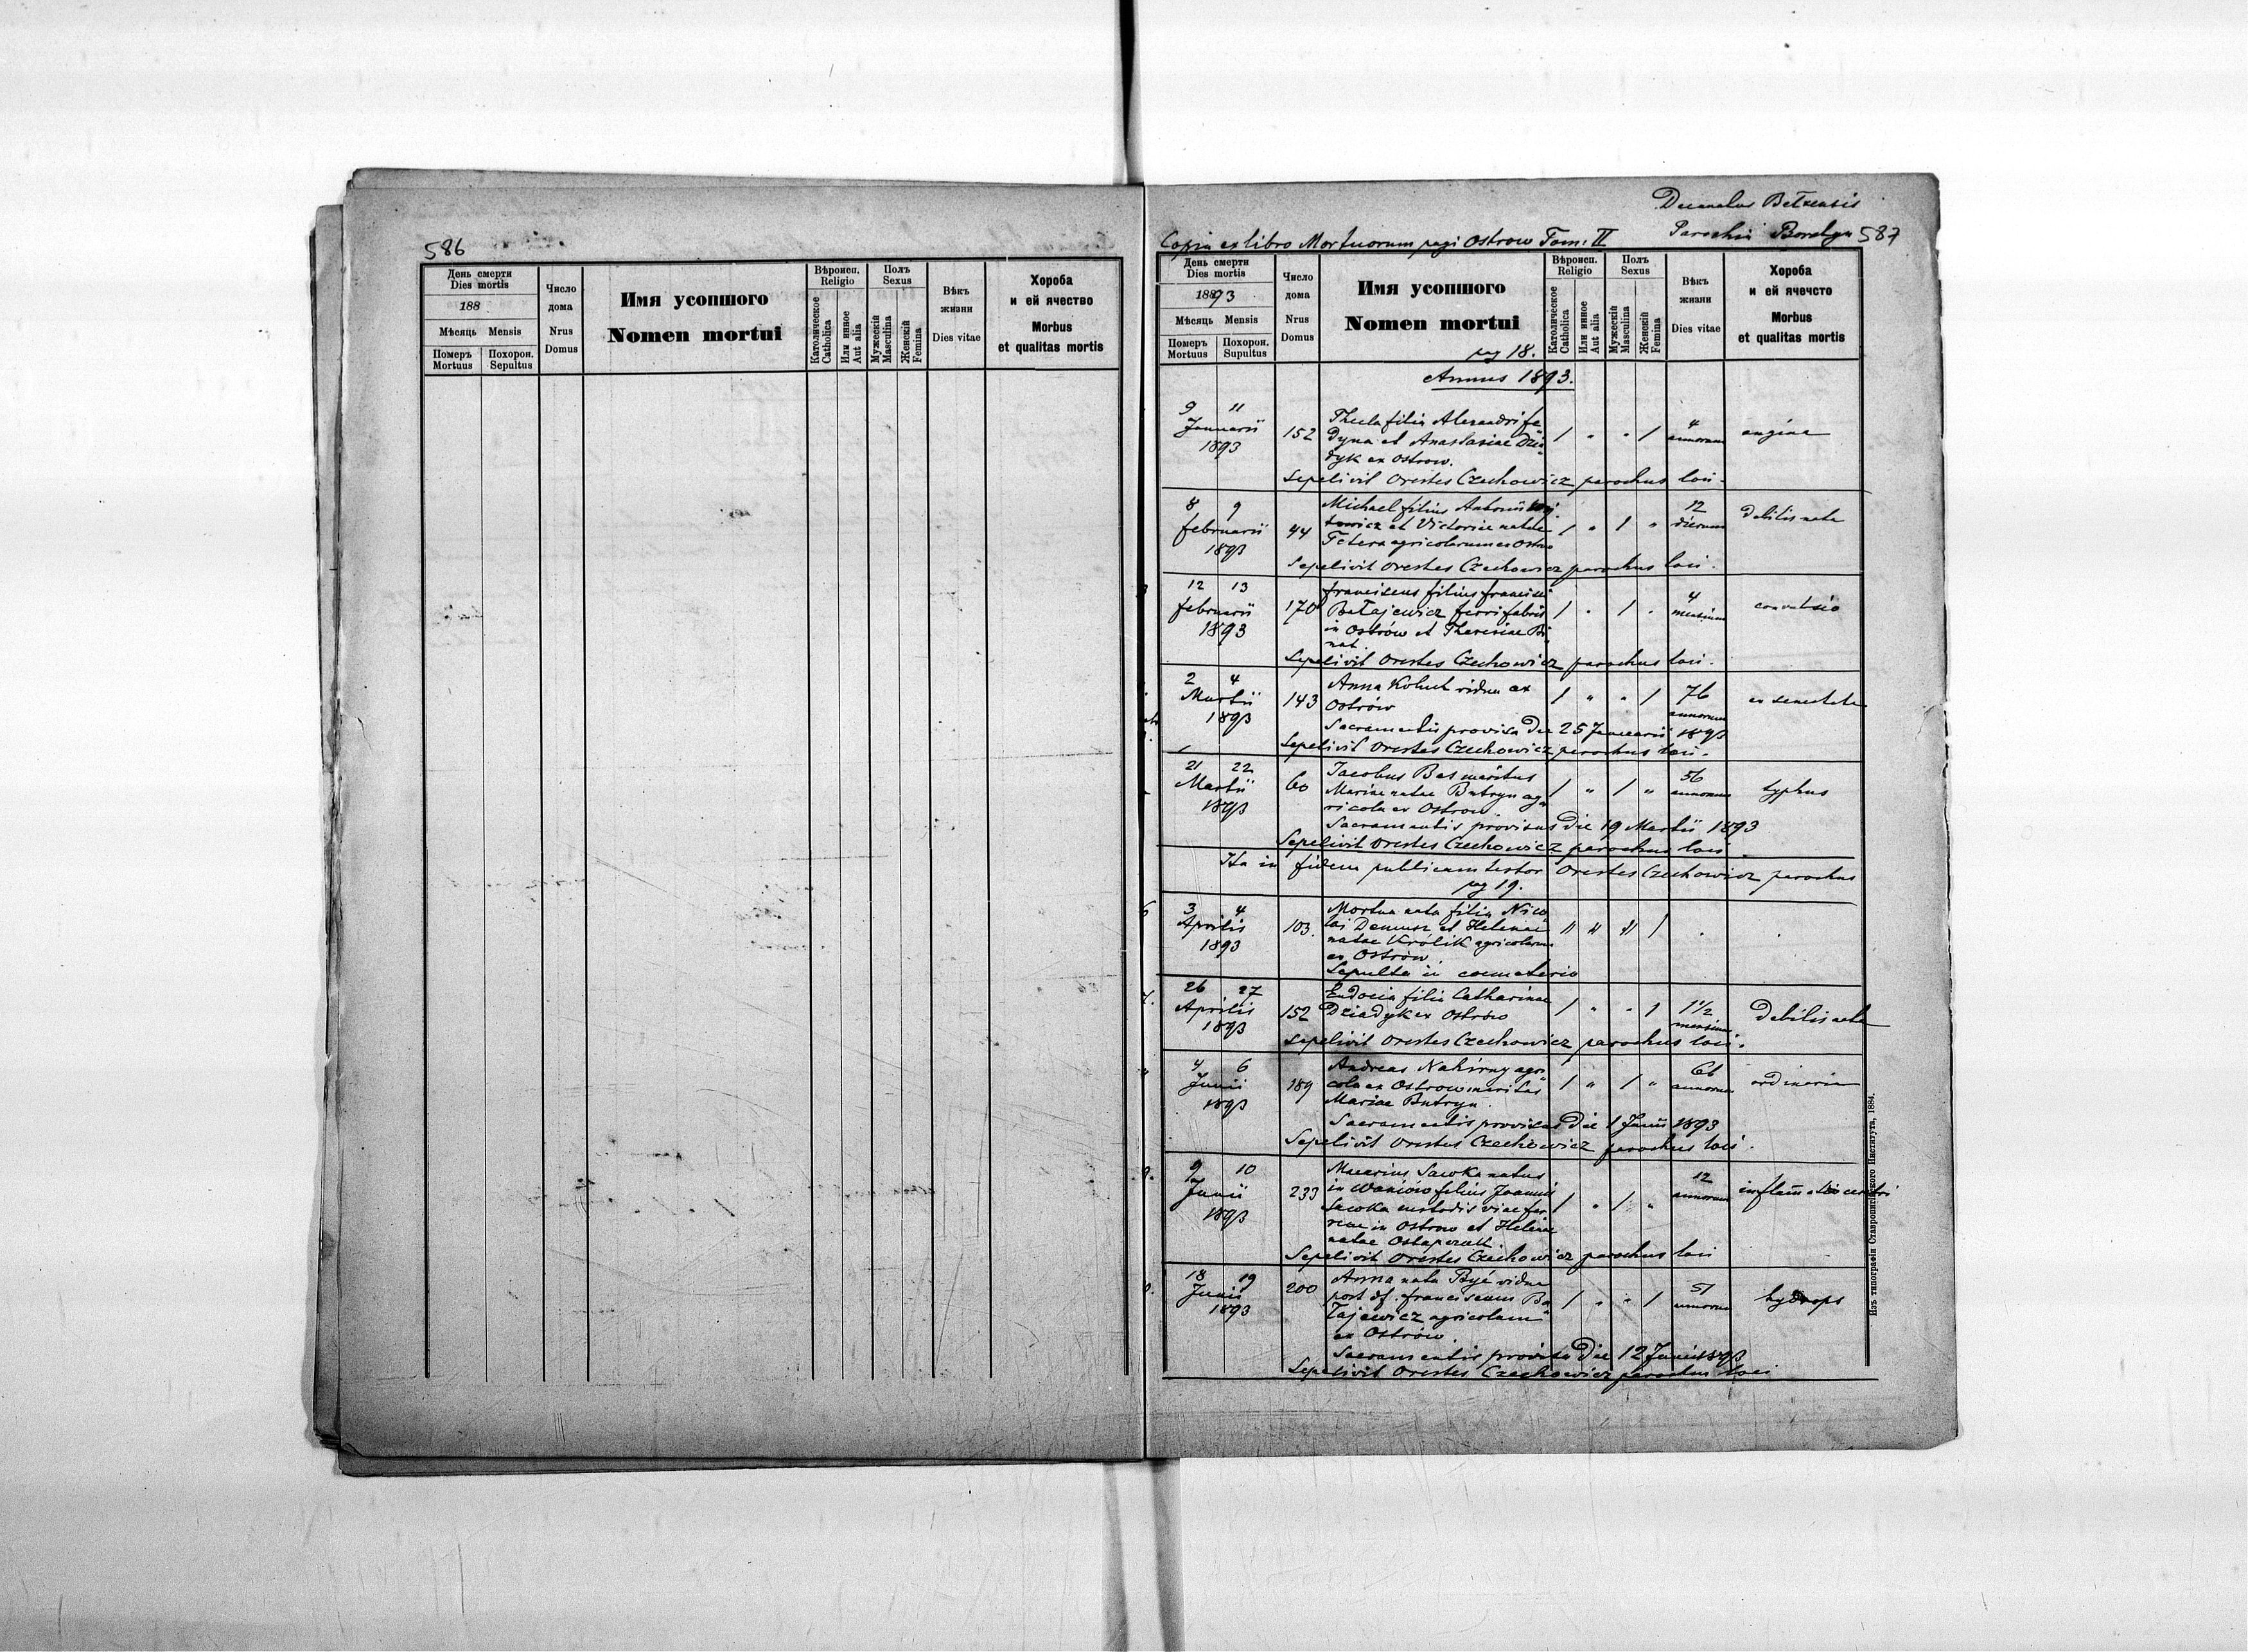 586
День смерти
Dies mortis
188
Мѣсяць Mensis
Померъ Похорон.
Mortuus Sepultus
Число
дома
Nrus
Domus
Имя усопшого
Nomen mortui
Вѣроисп.
Religio
Католическое
Catholica
Или инное
Aut alia
Полъ
Sexus
Мужескій
Masculina
Женскій
Femina
Вѣкъ
жизни
Dies vitae
Хороба
и ей ячество
Morbus
et qualitas mortis
Decanatus Bełzensis
Parochia Boratyn 587
Copia ex libro Mortuorum pagi Ostrow Tom: II
День смерти
Dies mortis
1893
Мѣсяць Mensis
Померъ Похорон.
Mortuus Supultus
Число
дома
Nrus
Domus
Имя усопшого
Nomen mortui
pag 18.
Вѣроисп.
Religio
Католическое
Catholica
Или инное
Aut alia
Полъ
Sexus
Мужескій
Masculina
Женскій
Femina
Вѣкъ
жизни
Dies vitae
Хороба
и ей ячечсто
Morbus
et qualitas mortis
Annus 1893.
9 11
Januarii
1893
152
Thecla filia Alexandri Fe
dyna et Anastasiae Dzia
dyk ex Ostrow.
1 " " 1
4
annorum
angina
Sepelivit Orestes Czechowicz parochus loci.
8 9
Februarii
1893
44
Michael filius Antonii
et Victoriae natae
Fetera agricolarum ex Ostrow
1 " 1 "
12
dierum
debilis nata
Sepelivit Orestes Czechowicz parochus loci.
12 13
Februarii
1893
170
Franciscus filius Francisci
Bałajewicz ferrifabri
in Ostrów et Theresiae
1 " 1 "
4
mensium
convulsio
Sepelivit Orestes Czechowicz parochus loci.
2 4
Martii
1893
143
Anna Kohut vidua ex
Ostrów
1 " " 1
76
annorum
ex senectute
Sacramentis provisa die 25 Januarii 1893
Sepelivit Orestes Czechowicz parochus loci.
21 22
Martii
1893
60
Jacobus Bas maritus
Mariae natae Butryn ag
ricola ex Ostrow.
1 " 1 "
56
annorum
typhus
Sacramentis provisus die 19 Martii 1893
Sepelivit Orestes Czechowicz parochus loci.
Ita in fidem publicam testor Orestes Czechowicz parochus
pag 19.
3 4
Aprilis
1893
103.
Mortua nata filia Nico
lai Demusz et Helenae
natae Królik agricolarum
ex Ostrów.
Sepulta in coemeterio
26 27
Aprilis
1893
152
Eudocia filia Catharinae
Dziadyk ex Ostrów
1 " " 1
1 1/2
mensium
debilis nata
Sepelivit Orestes Czechowicz parochus loci.
4 6
Junii
1893
189
Andreas Nahirny agri
cola ex Ostrow maritus
Mariae Butryn.
1 " 1 "
66
annorum
ordinaria
Sacramentis provisus die 1 Junii 1893
Sepelivit Orestes Czechowicz parochus loci.
9 10
Junii
1893
233
Macarius Sawka natus
in Waniów filius Joannis
Sawka custodis viae fer
reae in Ostrow et Helenae
natae
1 " 1 "
12
annorum
inflam̄atio cerebri
Sepelivit Orestes Czechowicz parochus loci
18 19
Junii
1893
200
Anna nata Być vidua
post df. Franciscum Ba
łajewicz agricolam
ex Ostrów.
1 " " 1
51
annorum
hydrops
Sacramentis provisa die 12 Junii 1893
Sepelivit Orestes Czechowicz parochus loci
Изъ типографіи Ставропигійского Института, 1884.